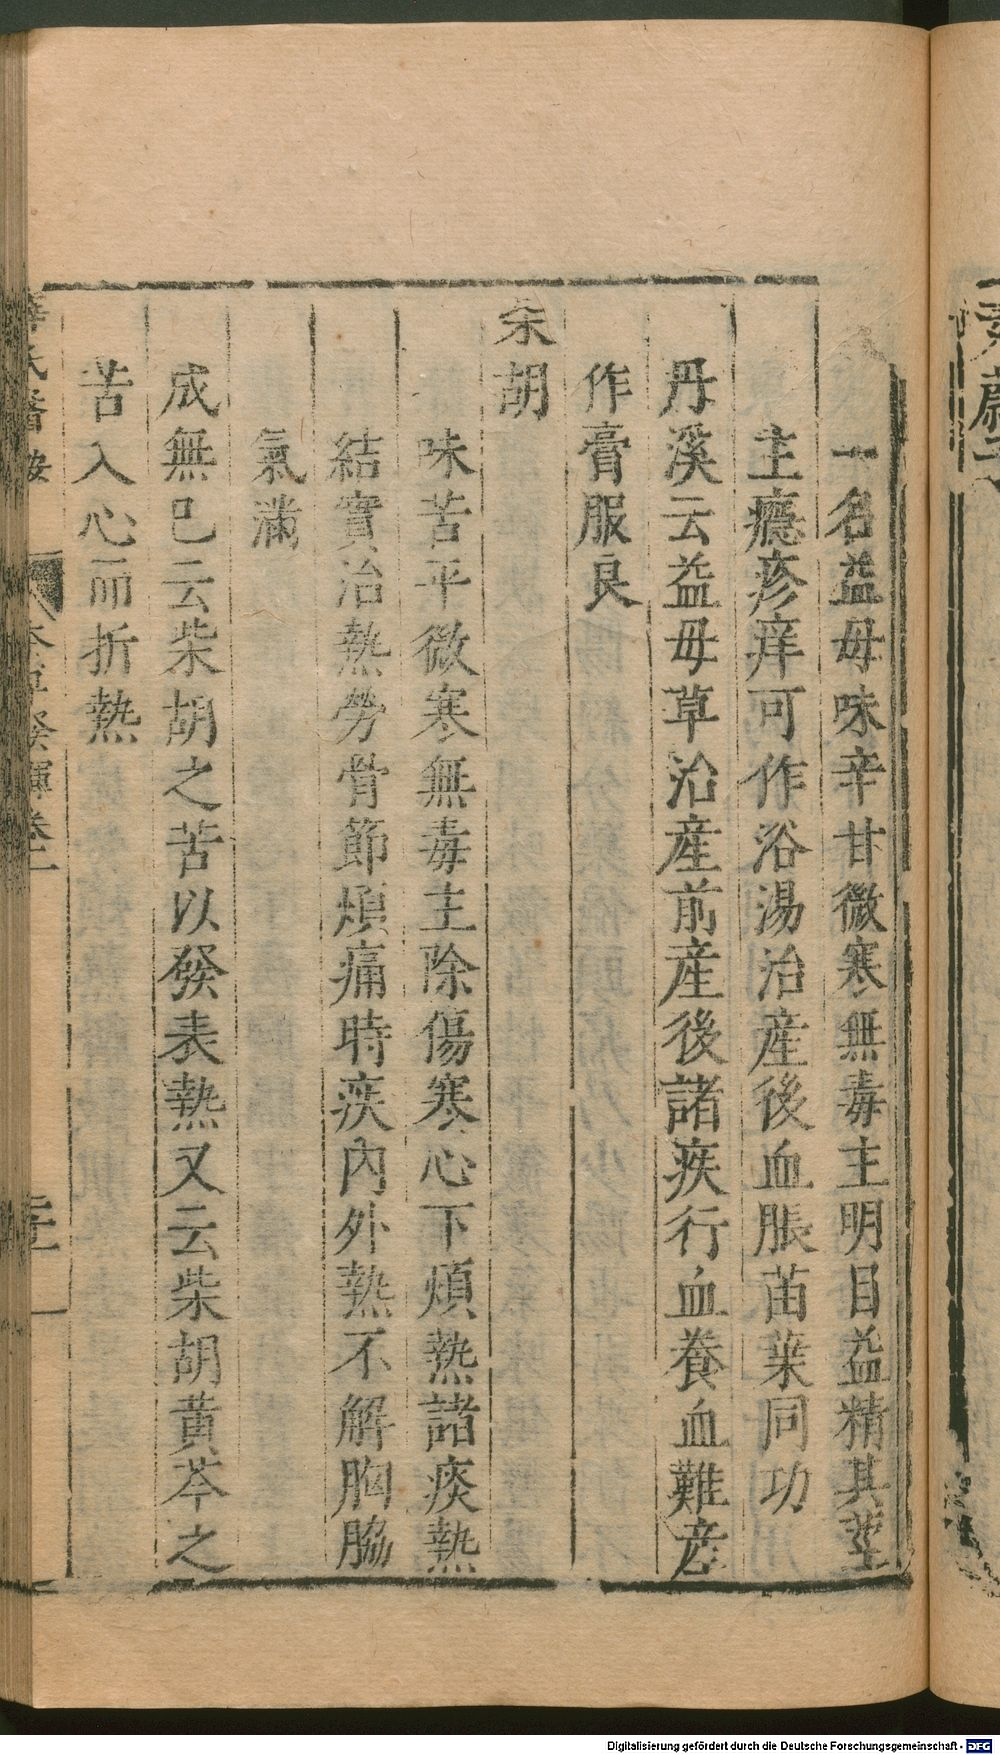 一名益母味辛甘微寒無毒主明目益精其莖
主癮疹痒可作浴湯治產後血脹苗葉同功
丹溪云益母草治產前產後諸疾行血養血難產
作膏服良
柴胡
味苦平微寒無毒主除傷寒心下煩熱諸痰熱
結實治熱勞骨節煩痛時疾內外熱不解胸脇
氣滿
成無已云柴胡之苦以發表熱又云柴胡黃芩之
苦入心而折熱
Digitalisierung gefördert durch die Deutsche Forschungsgemeinschaft - DFG